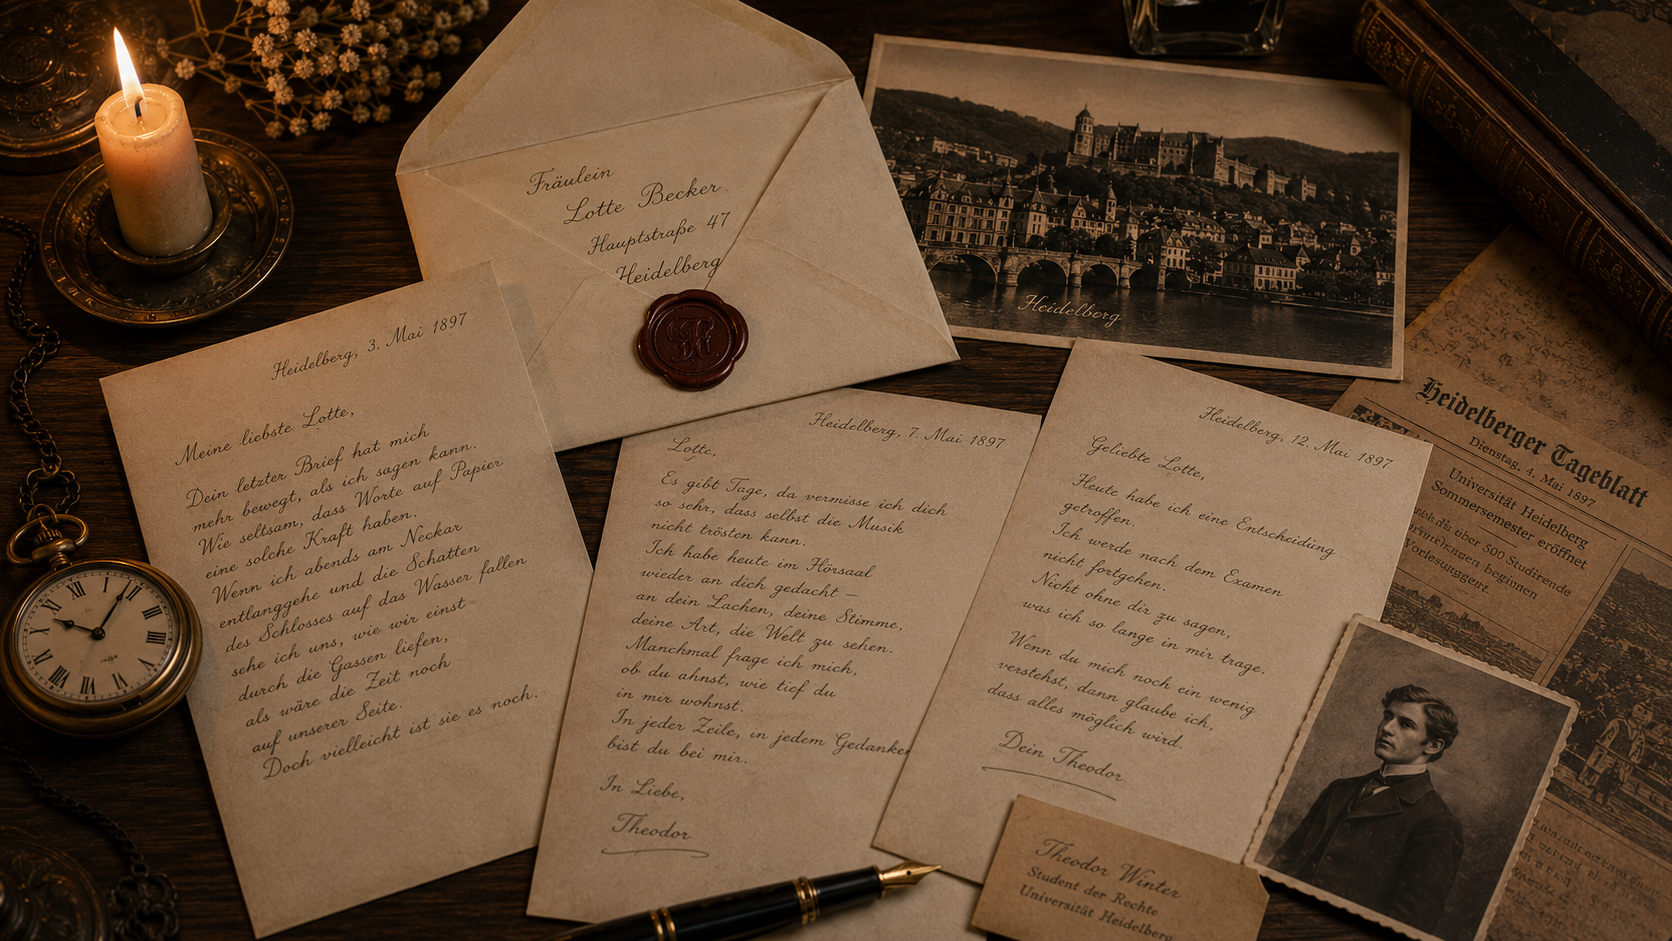 Fräulein
Lotte Becker
Hauptstraße 47
Heidelberg
Heidelberg
Heidelberg, 3. Mai 1897
Meine liebste Lotte,
Dein letzter Brief hat mich
mehr bewegt, als ich sagen kann.
Wie seltsam, dass Worte auf Papier
eine solche Kraft haben.
Wenn ich abends am Neckar
entlanggehe und die Schatten
des Schlosses auf das Wasser fallen
sehe ich uns, wie wir einst
durch die Gassen liefen,
als wäre die Zeit noch
auf unserer Seite.
Doch vielleicht ist sie es noch.
Heidelberg, 7. Mai 1897
Lotte,
Es gibt Tage, da vermisse ich dich
so sehr, dass selbst die Musik
nicht trösten kann.
Ich habe heute im Hörsaal
wieder an dich gedacht –
an dein Lachen, deine Stimme,
deine Art, die Welt zu sehen.
Manchmal frage ich mich,
ob du ahnst, wie tief du
in mir wohnst.
In jeder Zeile, in jedem Gedanken
bist du bei mir.
In Liebe,
Theodor
Heidelberg, 12. Mai 1897
Geliebte Lotte,
Heute habe ich eine Entscheidung
getroffen.
Ich werde nach dem Examen
nicht fortgehen.
Nicht ohne dir zu sagen,
was ich so lange in mir trage.
Wenn du mich noch ein wenig
verstehst, dann glaube ich,
dass alles möglich wird.
Dein Theodor
Theodor Winter
Student der Rechte
Universität Heidelberg
Heidelberger Tageblatt
Dienstag, 4. Mai 1897
Universität Heidelberg
Sommersemester eröffnet
über 500 Studirende
beginnen
Vorlesungen